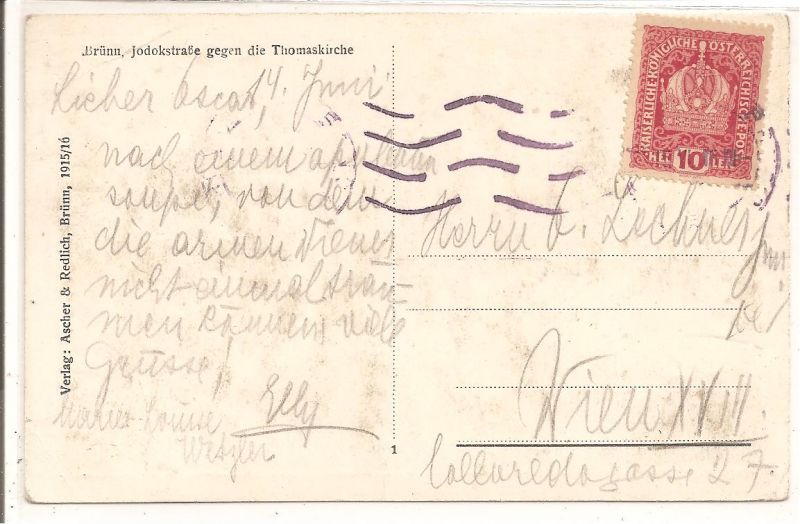 Brünn, Jodokstraße gegen die Thomaskirche
14. Juni
Lieber Oscar,
nach einem
souper, von dem
die armen Wiener
nicht einmal träu-
men können, viele
Grüsse!
Elly
Marie Louise
Wetzler
Verlag: Ascher & Redlich, Brünn, 1915/16
1
KAISERLICHE KÖNIGLICHE ÖSTERREICHISCHE POST
HELLER 10
Herrn
Wien XVIII
Colloredogasse 27.